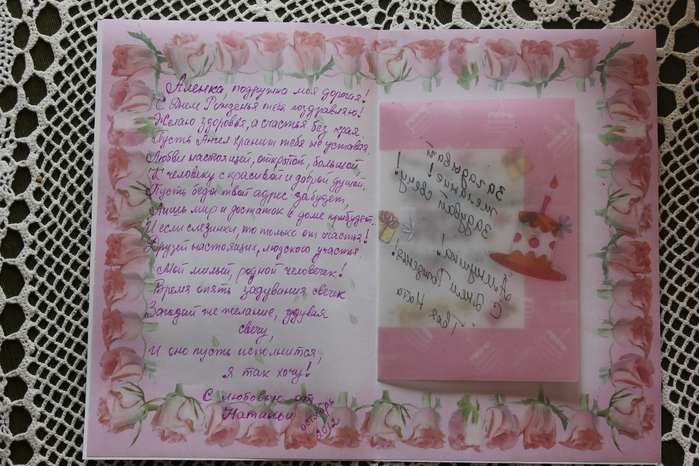 Аленка, подружка моя дорогая!
С Днем Рожденья тебя поздравляю!
Желаю здоровья, а счастья без края.
Пусть Ангел хранит тебя не уставая.
Любви настоящей, открытой, большой,
К человеку с красивой и доброй душой.
Пусть беда твой адрес забудет,
Лишь мир и достаток в доме прибудет.
И если слезинки то только от счастья!
Друзей настоящих, людского участия
Мой милый, родной человечек!
Время опять задувания свечек
Загадай же желание, задувая
свечу,
И оно пусть исполнится,
я так хочу!
С любовью от
Натальи
октябрь
2012
Загадывай
желание!
Задувай свечу!
Аленушка!
С Днем Рождения!
Твоя Ната